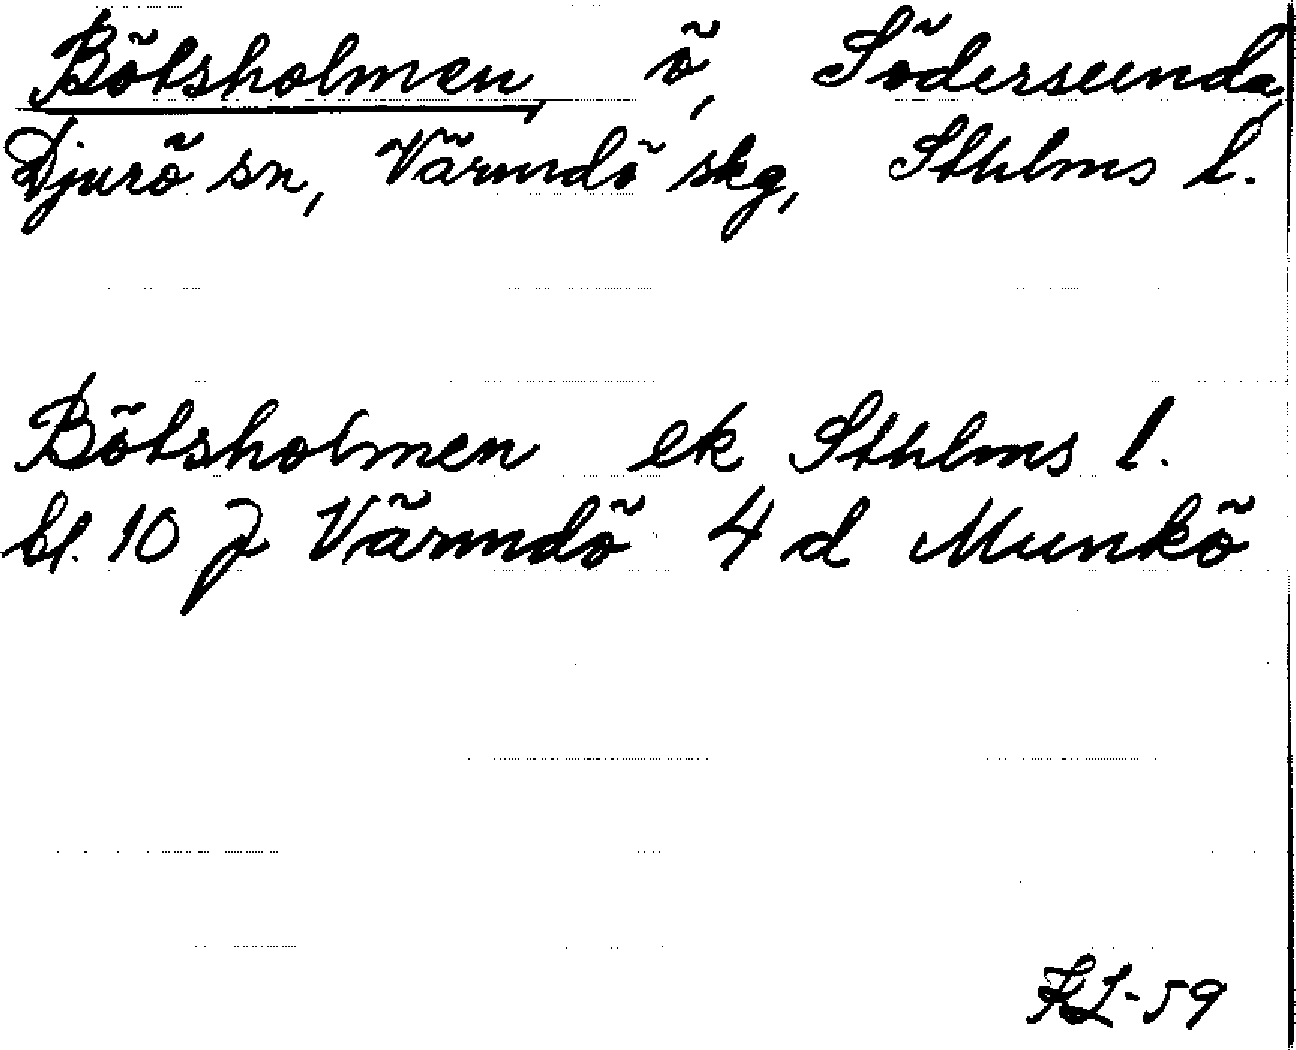 Bötsholmen, ö, Södersunda,
Djurö sn, Värmdö skg, Sthlms l.
Bötsholmen ek Sthlms l.
bl. 10 J Värmdö 4 d Munkö
KL-59